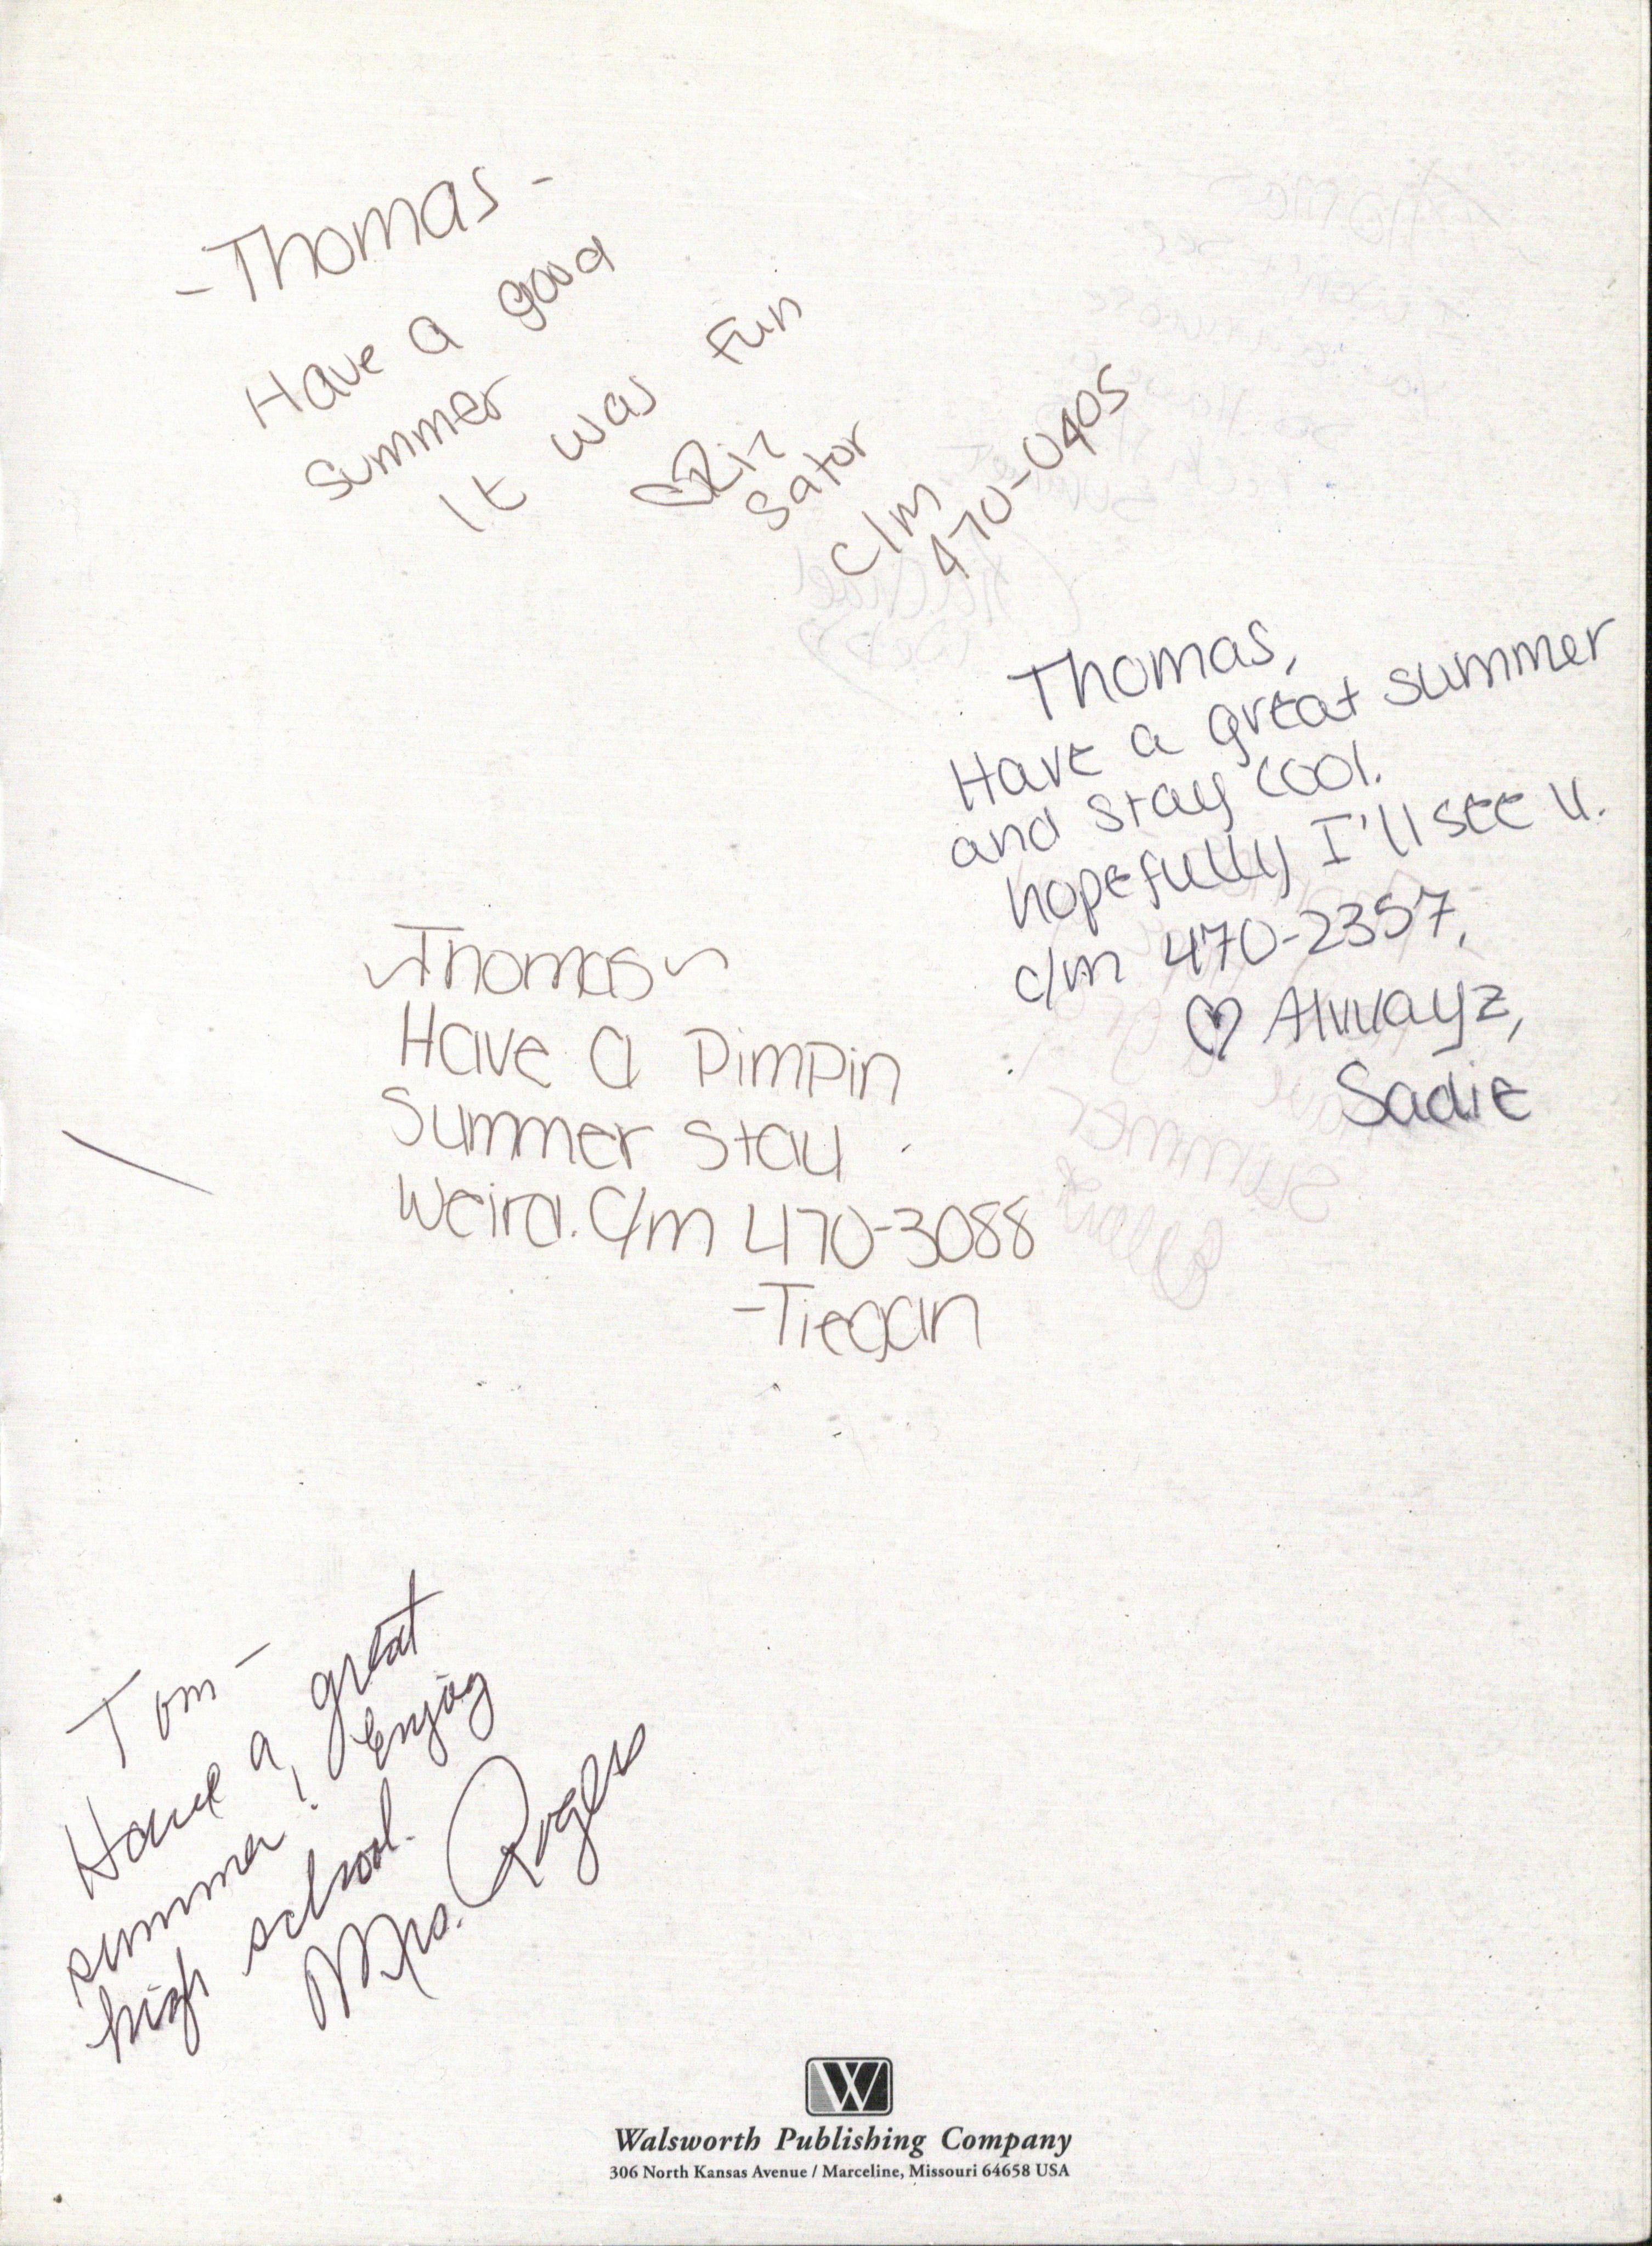 -Thomas-
Have a good
summer
It was fun
Sator
c/m
470-0405
Thomas,
Have a great summer
and stay cool.
hopefully I'll see u.
c/m 470-2357,
♡ Alwayz,
Sadie
~Thomas~
Have a Pimpin
Summer stay
Weird. C/m 470-3088
-Tiegan
Tom-
Have a great
summer! Enjoy
high school.
Mrs. Rogers
W
Walsworth Publishing Company
306 North Kansas Avenue / Marceline, Missouri 64658 USA